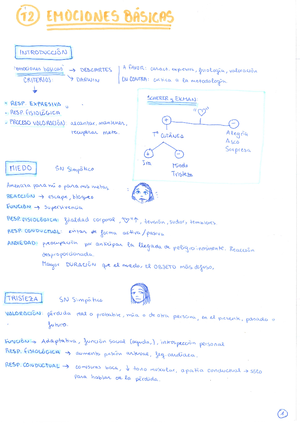 12 EMOCIONES BÁSICAS
INTRODUCCIÓN
"EMOCIONES BÁSICAS" → DESCARTES
CRITERIOS → DARWIN
A FAVOR: caract. expresión, fisiología, valoración
EN CONTRA: a la metodología
- RESP. EXPRESIVA
- RESP. FISIOLÓGICA
- PROCESO VALORACIÓN
meta.
SCHERER y EKMAN
Ira
Miedo
Tristeza
Alegría
Asco
Sorpresa
MIEDO
SN Simpático
Amenaza para mí o para mis metas
REACCIÓN → escape, bloqueo
FUNCIÓN → Supervivencia
RESP. FISIOLÓGICA: frialdad corporal, tensión, sudor, temblores
RESP. CONDUCTUAL: forma activa / pasiva
ANSIEDAD: preocupación por anticipar la llegada de peligro inminente. Reacción
desproporcionada.
Mayor DURACIÓN que el miedo, el OBJETO más difuso.
TRISTEZA
SN Simpático
VALORACIÓN: pérdida real o probable, mía o de otra persona, en el presente, pasado o
futuro.
FUNCIÓN: Adaptativa, función social (ayuda), introspección personal
RESP. FISIOLÓGICA → aumento presión arterial, frq. cardíaca.
RESP. CONDUCTUAL → ↓ tono muscular, apatía conductual → sólo
para hablar de la pérdida.
1